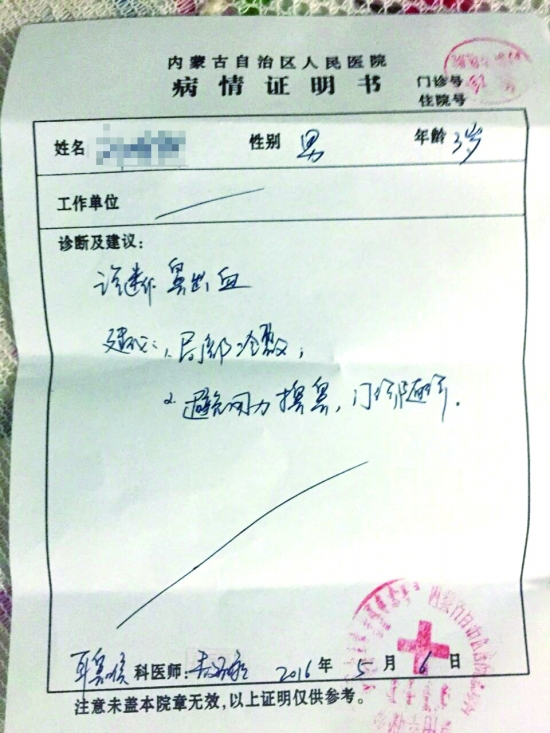 内蒙古自治区人民医院
病情证明书
门诊号
住院号
姓名 性别 男 年龄 3岁
工作单位
诊断及建议：
诊断 鼻出血
建议：1.局部冷敷；
2.避免用力擤鼻，门诊随诊.
耳鼻喉科医师： 2016年5月6日
注意未盖本院章无效，以上证明仅供参考。